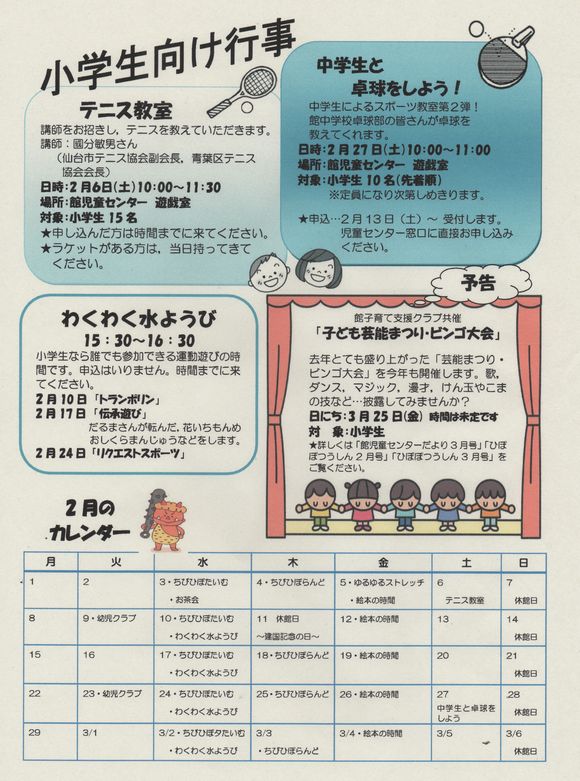 小学生向け行事
テニス教室
講師をお招きし，テニスを教えていただきます。
講師：國分敏男さん
（仙台市テニス協会副会長，青葉区テニス
協会会長）
日時：2月6日(土)10:00～11:30
場所：館児童センター 遊戯室
対象：小学生15名
★申し込んだ方は時間までに来てください。
★ラケットがある方は，当日持ってきて
ください。
中学生と
卓球をしよう！
中学生によるスポーツ教室第2弾！
館中学校卓球部の皆さんが卓球を
教えてくれます。
日時：2月27日(土)10:00～11:00
場所：館児童センター 遊戯室
対象：小学生10名(先着順)
※定員になり次第しめきります。
★申込…2月13日（土）～ 受付します。
児童センター窓口に直接お申し込み
ください。
わくわく水ようび
15：30～16：30
小学生なら誰でも参加できる運動遊びの時
間です。申込はいりません。時間までに来
てください。
2月10日「トランポリン」
2月17日「伝承遊び」
だるまさんが転んだ，花いちもんめ
おしくらまんじゅうなどをします。
2月24日「リクエストスポーツ」
予告
館子育て支援クラブ共催
「子ども芸能まつり・ビンゴ大会」
去年とても盛り上がった「芸能まつり・
ビンゴ大会」を今年も開催します。歌，
ダンス，マジック，漫才，けん玉やこま
の技など…披露してみませんか？
日にち：3月25日(金) 時間は未定です
対 象：小学生
★詳しくは「館児童センターだより3月号」「ひぽ
ぽつうしん2月号」「ひぽぽつうしん3月号」を
ご覧ください。
2月の
カレンダー
月 火 水 木 金 土 日
1 2 3・ちびひぽたいむ 4・ちびひぽらんど 5・ゆるゆるストレッチ 6 7
・お茶会 ・絵本の時間 テニス教室 休館日
8 9・幼児クラブ 10・ちびひぽたいむ 11 休館日 12・絵本の時間 13 14
・わくわく水ようび ～建国記念の日～ 休館日
15 16 17・ちびひぽたいむ 18・ちびひぽらんど 19・絵本の時間 20 21
・わくわく水ようび 休館日
22 23・幼児クラブ 24・ちびひぽたいむ 25・ちびひぽらんど 26・絵本の時間 27 28
・わくわく水ようび 中学生と卓球を 休館日
しよう
29 3/1 3/2・ちびひぽタたいむ 3/3 3/4・絵本の時間 3/5 3/6
・わくわく水ようび ・ちびひぽらんど 休館日